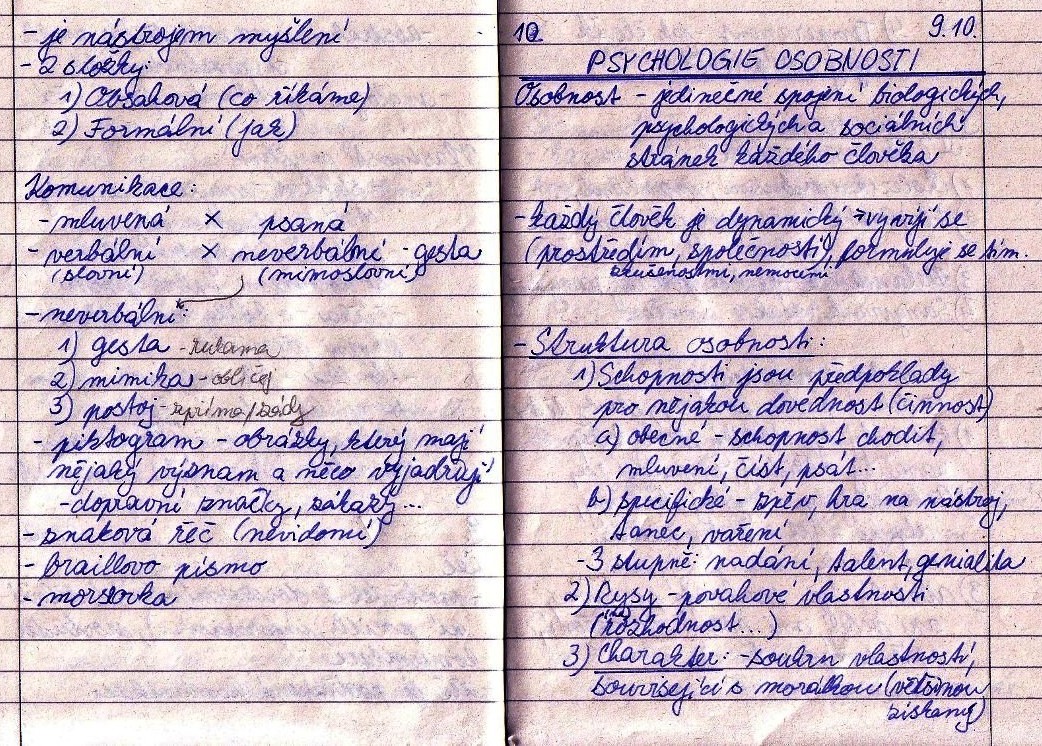 - je nástrojem myšlení
- 2 složky:
1) Obsahová (co říkáme)
2) Formální (jak)
Komunikace:
- mluvená × psaná
- verbální × neverbální - gesta
(slovní) (mimoslovní)
- neverbální*:
1) gesta - rukama
2) mimika - obličej
3) postoj - zpříma/zády
- piktogram - obrázky, který mají
nějaký význam a něco vyjadřují
- dopravní značky, zákazy...
- znaková řěč (nevidomí)
- braillovo písmo
- morsovka
10 9.10.
PSYCHOLOGIE OSOBNOSTI
Osobnost - jedinečné spojení biologických,
psychologických a sociálních
stránek každého člověka
- každý člověk je dynamický → vyvíjí se
(prostředím, společností), formuluje se tím.
zkušenostmi, nemocimi
- Struktura osobnosti:
1) Schopnosti jsou předpoklady
pro nějakou dovednost (činnost)
a) obecné - schopnost chodit,
mluvení, číst, psát...
b) specifické - zpěv, hra na nástroj,
tanec, vaření
- 3 stupně: nadání, talent, genialita
2) Rysy - povahové vlastnosti
(rozhodnost...)
3) Charakter: - souhrn vlastností,
související s morálkou (většinou
získaný)